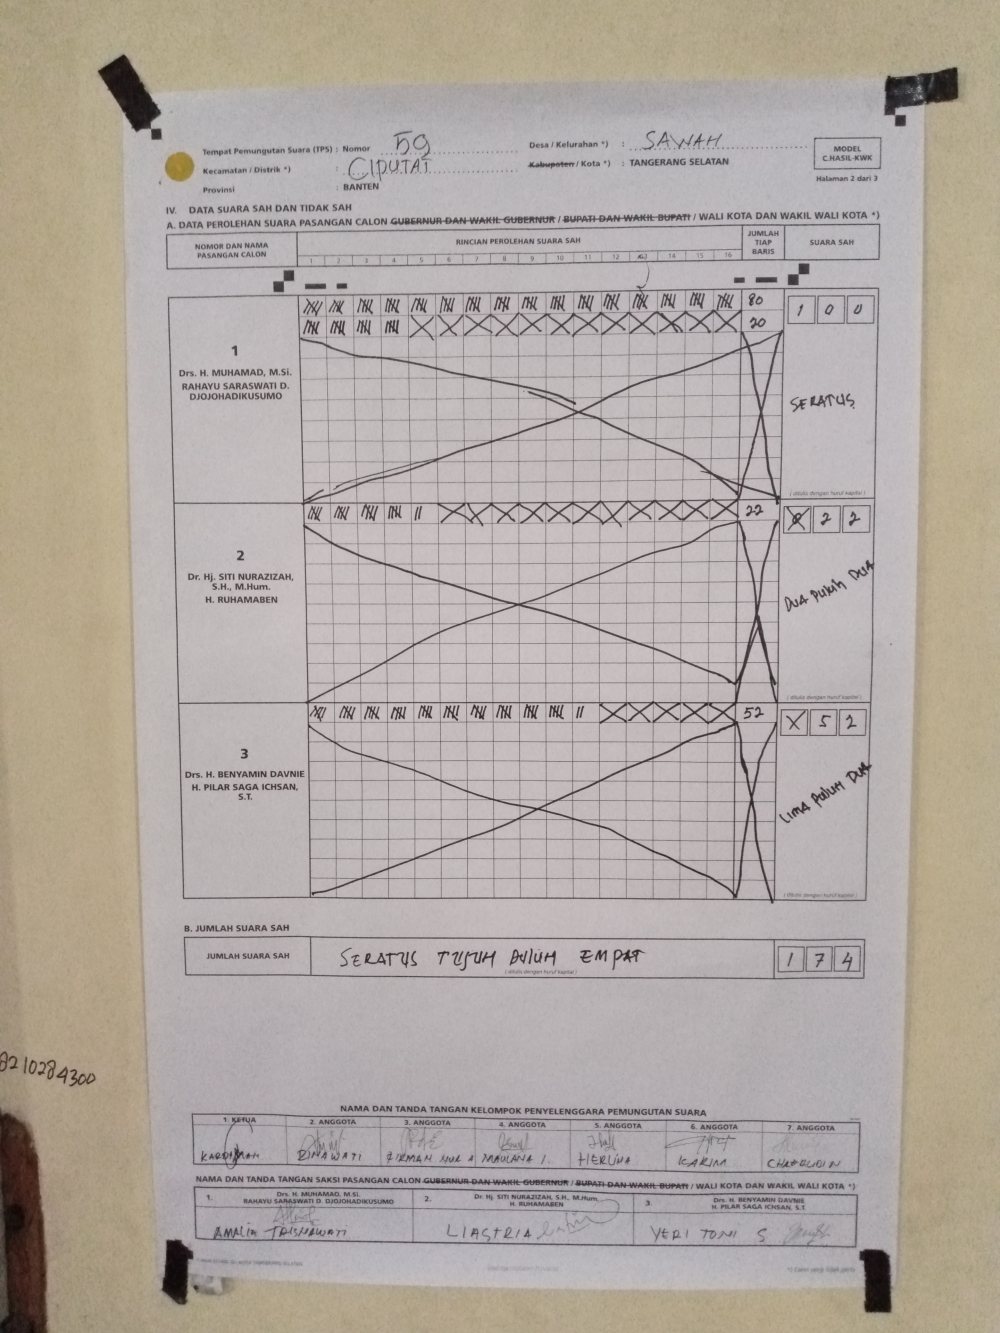 Tempat Pemungutan Suara (TPS) : Nomor 59 Desa / Kelurahan *) : SAWAH
Kecamatan / Distrik *) : CIPUTAT Kabupaten / Kota *) : TANGERANG SELATAN
Provinsi : BANTEN
MODEL
C.HASIL-KWK
Halaman 2 dari 3
IV. DATA SUARA SAH DAN TIDAK SAH
A. DATA PEROLEHAN SUARA PASANGAN CALON GUBERNUR DAN WAKIL GUBERNUR / BUPATI DAN WAKIL BUPATI / WALI KOTA DAN WAKIL WALI KOTA *)
NOMOR DAN NAMA PASANGAN CALON
RINCIAN PEROLEHAN SUARA SAH
1 2 3 4 5 6 7 8 9 10 11 12 13 14 15 16
JUMLAH TIAP BARIS
SUARA SAH
1
Drs. H. MUHAMAD, M.Si.
RAHAYU SARASWATI D.
DJOJOHADIKUSUMO
80
20
1 0 0
SERATUS
( ditulis dengan huruf kapital )
2
Dr. Hj. SITI NURAZIZAH,
S.H., M.Hum.
H. RUHAMABEN
22
2 2
DUA PULUH DUA
( ditulis dengan huruf kapital )
3
Drs. H. BENYAMIN DAVNIE
H. PILAR SAGA ICHSAN,
S.T.
52
X 5 2
LIMA PULUH DUA
( ditulis dengan huruf kapital )
B. JUMLAH SUARA SAH
JUMLAH SUARA SAH
SERATUS TUJUH PULUH EMPAT
( ditulis dengan huruf kapital )
1 7 4
8210284300
NAMA DAN TANDA TANGAN KELOMPOK PENYELENGGARA PEMUNGUTAN SUARA
1. KETUA 2. ANGGOTA 3. ANGGOTA 4. ANGGOTA 5. ANGGOTA 6. ANGGOTA 7. ANGGOTA
RINAWATI FIRMAN NUR A MAULANA I. HERLINA KARIM
NAMA DAN TANDA TANGAN SAKSI PASANGAN CALON GUBERNUR DAN WAKIL GUBERNUR / BUPATI DAN WAKIL BUPATI / WALI KOTA DAN WAKIL WALI KOTA *)
1. Drs. H. MUHAMAD, M.Si.
RAHAYU SARASWATI D. DJOJOHADIKUSUMO
2. Dr. Hj. SITI NURAZIZAH, S.H., M.Hum.
H. RUHAMABEN
3. Drs. H. BENYAMIN DAVNIE
H. PILAR SAGA ICHSAN, S.T.
AMALIA TRISNAWATI LIASTRIA YERI TONI S
*) Coret yang tidak perlu